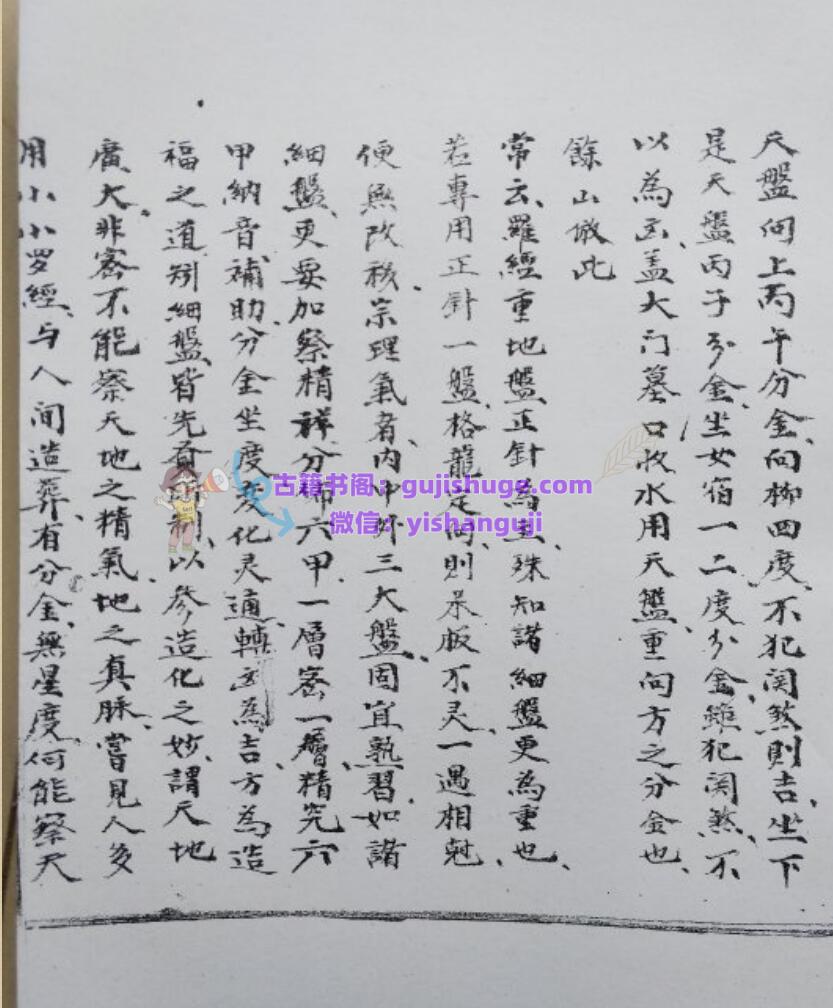 天盤向上丙午分金、向柳四度、不犯関煞則吉、坐下
是天盤丙子分金、坐女宿一二度分金、雖犯関煞、不
以為凶、盖大门墓口收水用天盤重向方之分金也、
餘山倣此
常云、羅經重地盤正針為主、殊知諸細盤更為重也、
若専用正針一盤、格龍定向、則呆版不灵、一遇相尅
便無改移、宗理氣者、内中外三大盤、固宜熟習、如諸
細盤、更要加察精祥、分佈六甲、一層密一層、精究六
甲納音補助、分金坐度、变化灵通、轉凶為吉、方為造
福之道、列細盤、皆先賢制、以參造化之妙、謂天地
廣大、非密不能察天地之精氣、地之真脉、嘗見人多
用小小罗經、与人间造葬、有分金、無星度、何能察天
古籍书阁：gujishuge.com
微信：yishanguji